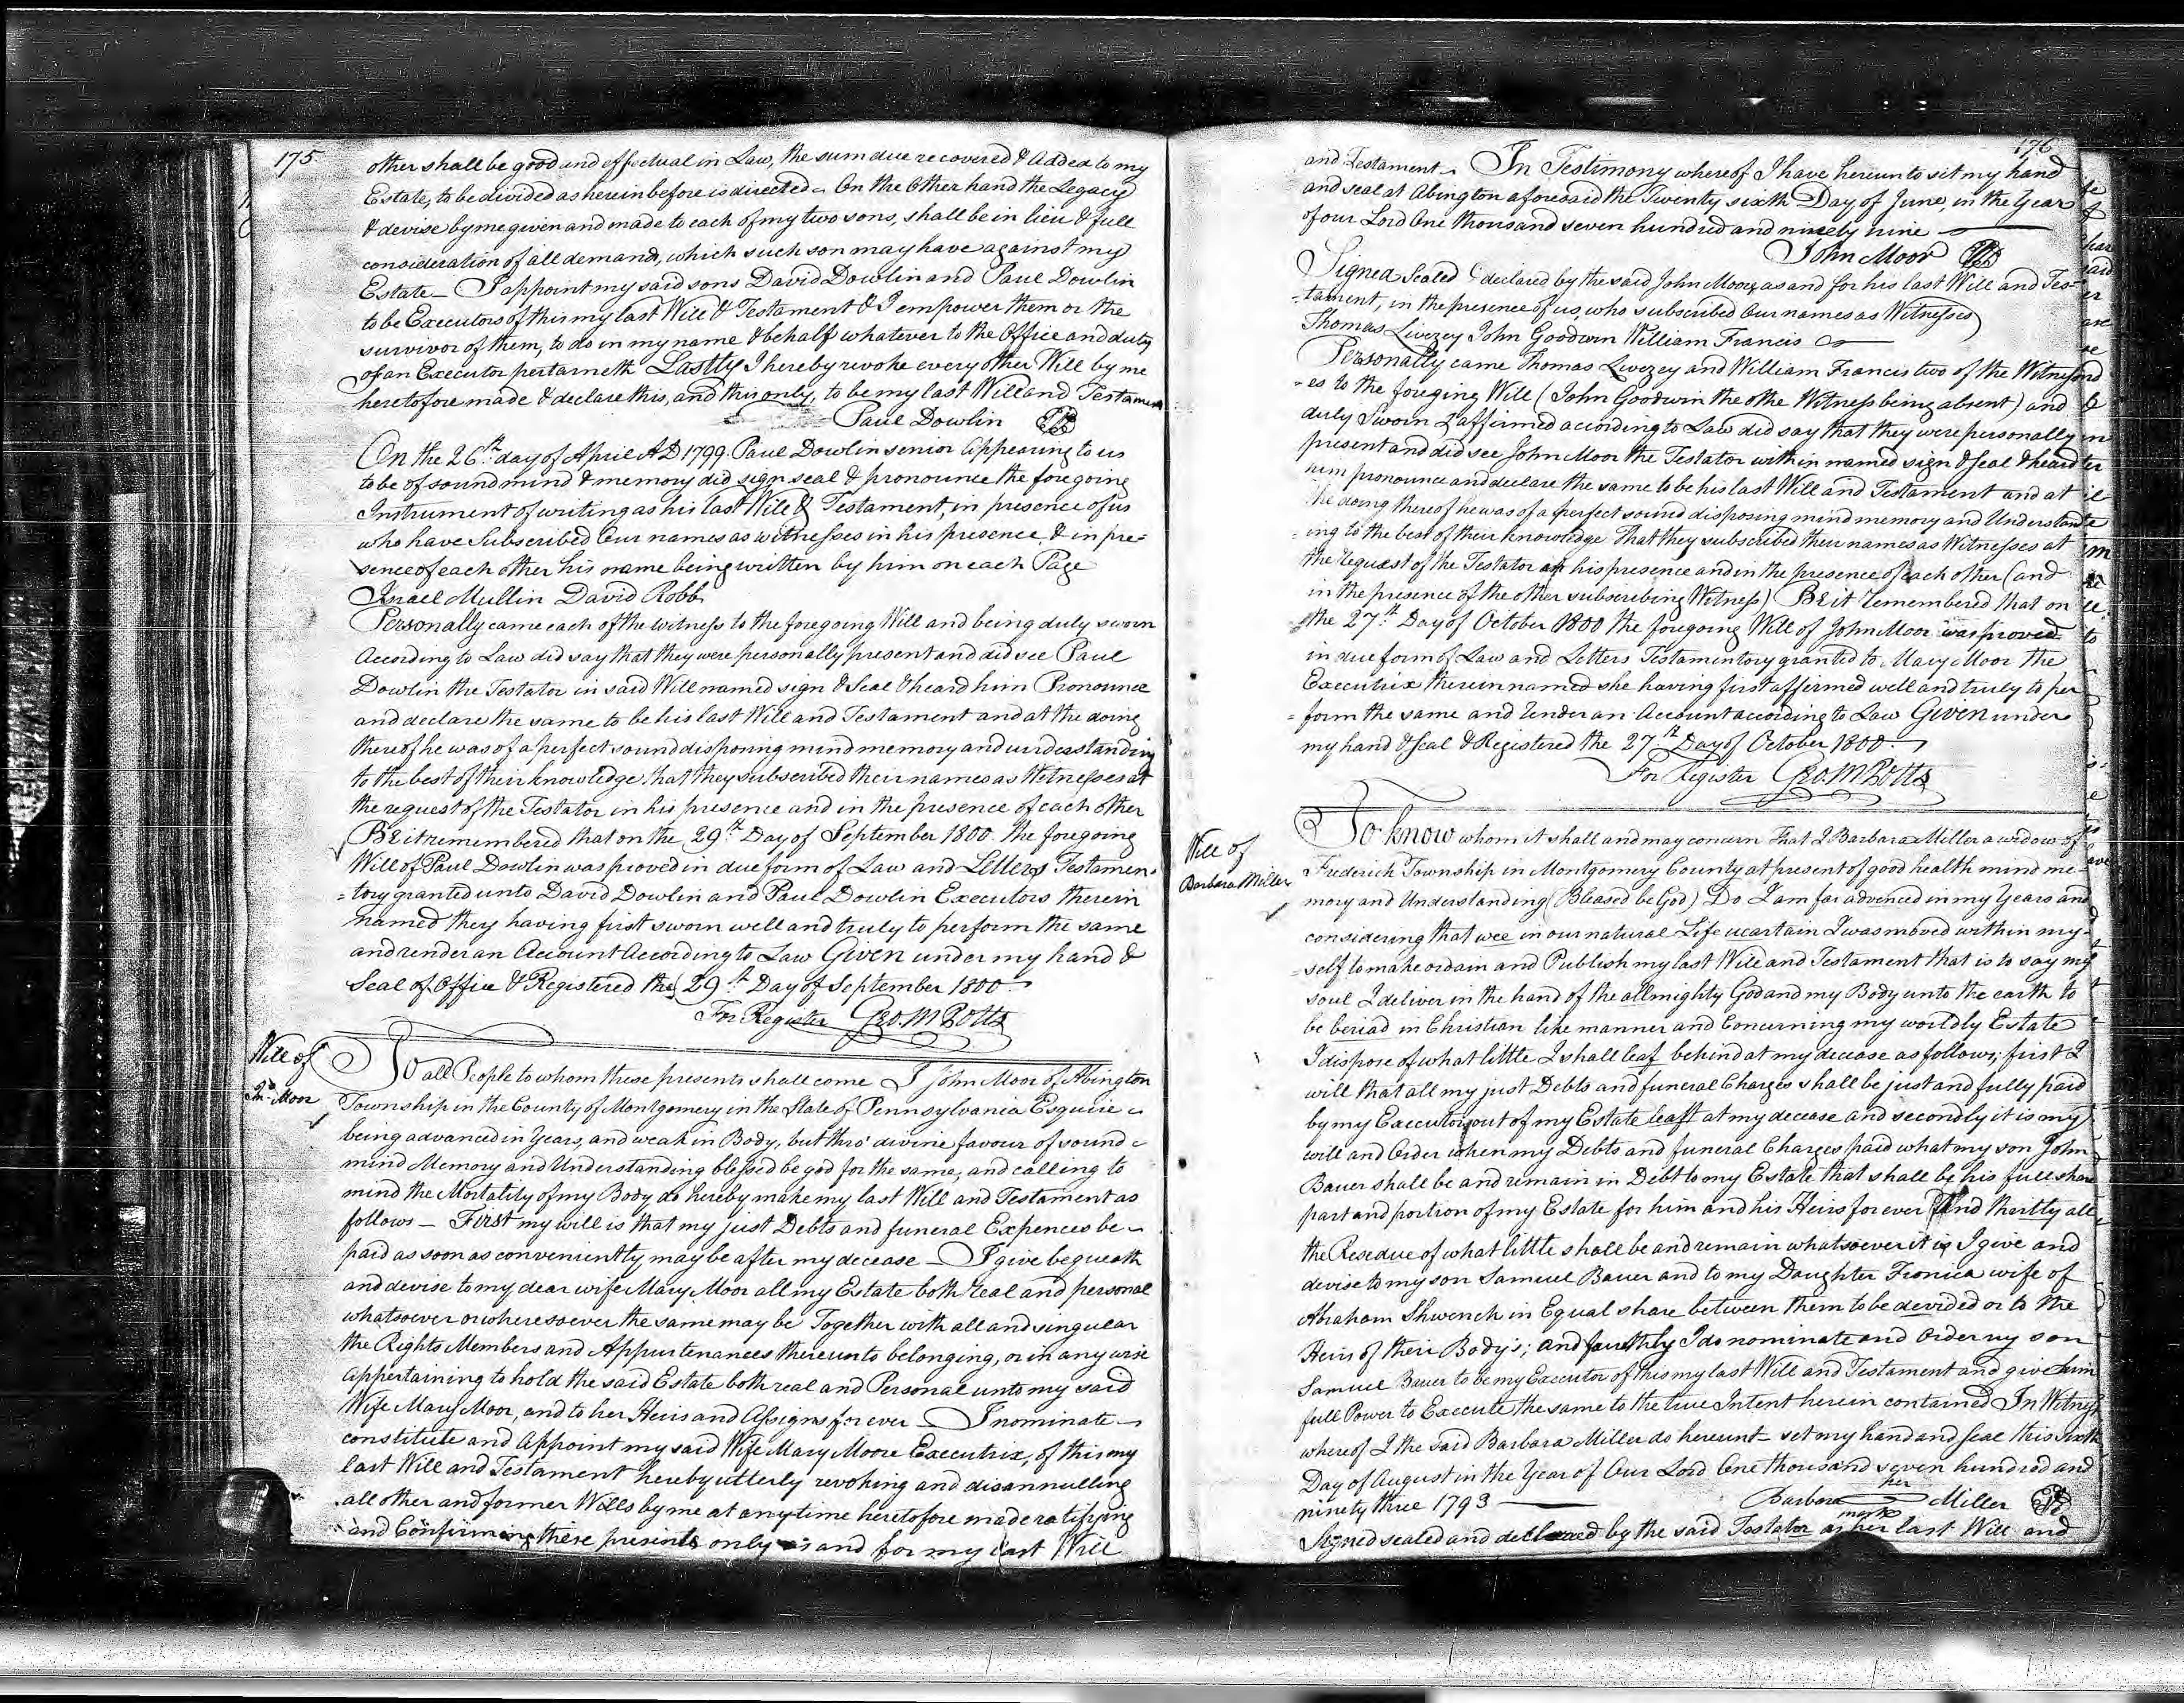 175
other shall be good and effectual in Law, the sum due recovered & added to my
Estate, to be divided as herein before is directed - On the Other hand the Legacy
& devise by me given and made to each of my two sons, shall be in lieu & full
consideration of all demand, which such son may have against my
Estate - I appoint my said sons David Dowlin and Paul Dowlin
to be Executors of this my last Will & Testament & I empower them or the
survivor of them, to do in my name & behalf whatever to the Office and duty
of an Executor pertaineth Lastly I hereby revoke every other Will by me
heretofore made & declare this, and this only, to be my last Will and Testamen
Paul Dowlin
On the 26th day of April AD 1799 Paul Dowlin senior Appearing to us
to be of sound mind & memory did sign seal & pronounce the foregoing
Instrument of writing as his last Will & Testament, in presence of us
who have Subscribed Our names as witnesses in his presence & in pre=
sence of each other his name being written by him on each Page
Israel Mullin David Robb
Personally came each of the witness to the foregoing Will and being duly sworn
According to Law did say that they were personally present and did see Paul
Dowlin the Testator in said Will named sign & Seal & heard him Pronounce
and declare the same to be his last Will and Testament and at the doing
thereof he was of a perfect sound disposing mind memory and understanding
to the best of their knowledge that they subscribed their names as Witnesses at
the request of the Testator in his presence and in the presence of each other
BE it remembered that on the 29th Day of September 1800 the foregoing
Will of Paul Dowlin was proved in due form of Law and Letters Testamen=
=tory granted unto David Dowlin and Paul Dowlin Executors therein
named they having first sworn well and truly to perform the same
and render an Account According to Law Given under my hand &
Seal of Office & Registered the 29th Day of September 1800
For Register Geo. M Potts
Will of
Jn.o Moor
To all People to whom these presents shall come I John Moor of Abington
Township in the County of Montgomery in the State of Pennsylvania Esquire
being advanced in Years, and weak in Body, but thro' divine favour of sound
mind Memory and Understanding blessed be god for the same, and calling to
mind the Mortality of my Body do hereby make my last Will and Testament as
follows - First my will is that my just Debts and funeral Expences be
paid as soon as conveniently may be after my decease - I give bequeath
and devise to my dear wife Mary Moor all my Estate both real and personal
whatsoever or wheresoever the same may be Together with all and singular
the Rights Members and Appurtenances thereunto belonging, or in any wise
appertaining to hold the said Estate both real and Personal unto my said
Wife Mary Moor, and to her Heirs and Assigns for ever - I nominate
constitute and Appoint my said Wife Mary Moore Executrix, of this my
last Will and Testament hereby utterly revoking and disannulling
all other and former Wills by me at any time heretofore made ratifying
and Confirming these presents only as and for my last Will
176
and Testament - In Testimony whereof I have hereunto set my hand
and seal at Abington aforesaid the Twenty sixth Day of June, in the Year
of our Lord One thousand seven hundred and ninety nine
John Moor
Signed Sealed & declared by the said John Moor, as and for his last Will and Tes=
=tament, in the presence of us, who subscribed Our names as Witnesses
Thomas Livezey John Goodwin William Francis
Personally came Thomas Livezey and William Francis two of the Witness
=es to the foreging Will (John Goodwin the othe Witness being absent) and
duly Sworn & affirmed according to Law did say that they were personally
present and did see John Moor the Testator within named sign & Seal & heard
him pronounce and declare the same to be his last Will and Testament and at
the doing thereof he was of a perfect sound disposing mind memory and Understand
=ing to the best of their knowledge That they subscribed their names as Witnesses at
the request of the Testator in his presence and in the presence of each other (and
in the presence of the other subscribing Witness) BE it remembered that on
the 27th Day of October 1800 the foregoing Will of John Moor was proved
in due form of Law and Letters Testamentory granted to Mary Moor the
Executrix therein named she having first affirmed well and truly to per
=form the same and render an Account according to Law Given under
my hand & Seal & Registered the 27th Day of October 1800
For Register Geo. M Potts
Will of
Barbara Miller
To know whom it shall and may concern that I Barbara Miller a widow of
Frederick Township in Montgomery County at present of good health mind me=
mory and Understanding (Bleased be God) Do I am far advenced in my Years and
considering that wee in our natural Life ucartain I was moved within my=
=self to make ordain and Publish my last Will and Testament that is to say my
soul I deliver in the hand of the allmighty God and my Body unto the earth to
be beriad in Christian like manner and Concurning my worldly Estate
I dispose of what little I shall leaf behind at my decease as follows; first I
will that all my just Debts and funeral Charges shall be just and fully paid
by my Executor, out of my Estate leaft at my decease and secondly it is my
will and Order when my Debts and funeral Charges paid what my son John
Bauer shall be and remain in Debt to my Estate that shall be his full share
part and portion of my Estate for him and his Heirs for ever And thirtly all
the Resedue of what little shall be and remain whatsoever it is I give and
devise to my son Samuel Bauer and to my Daughter Fronica wife of
Abraham Shwench in Equal share between them to be devided or to the
Heirs of their Body's; and fourthly I do nominate and Order my son
Samuel Bauer to be my Executor of this my last Will and Testament and give him
full Power to Execute the same to the true Intent herein contained In Witness
whereof I the said Barbara Miller do hereunt set my hand and seal this sixth
Day of August in the Year of Our Lord One thousand seven hundred and
ninety three 1793
her
Barbara Miller
mark
Signed sealed and declared by the said Testator as her last Will and